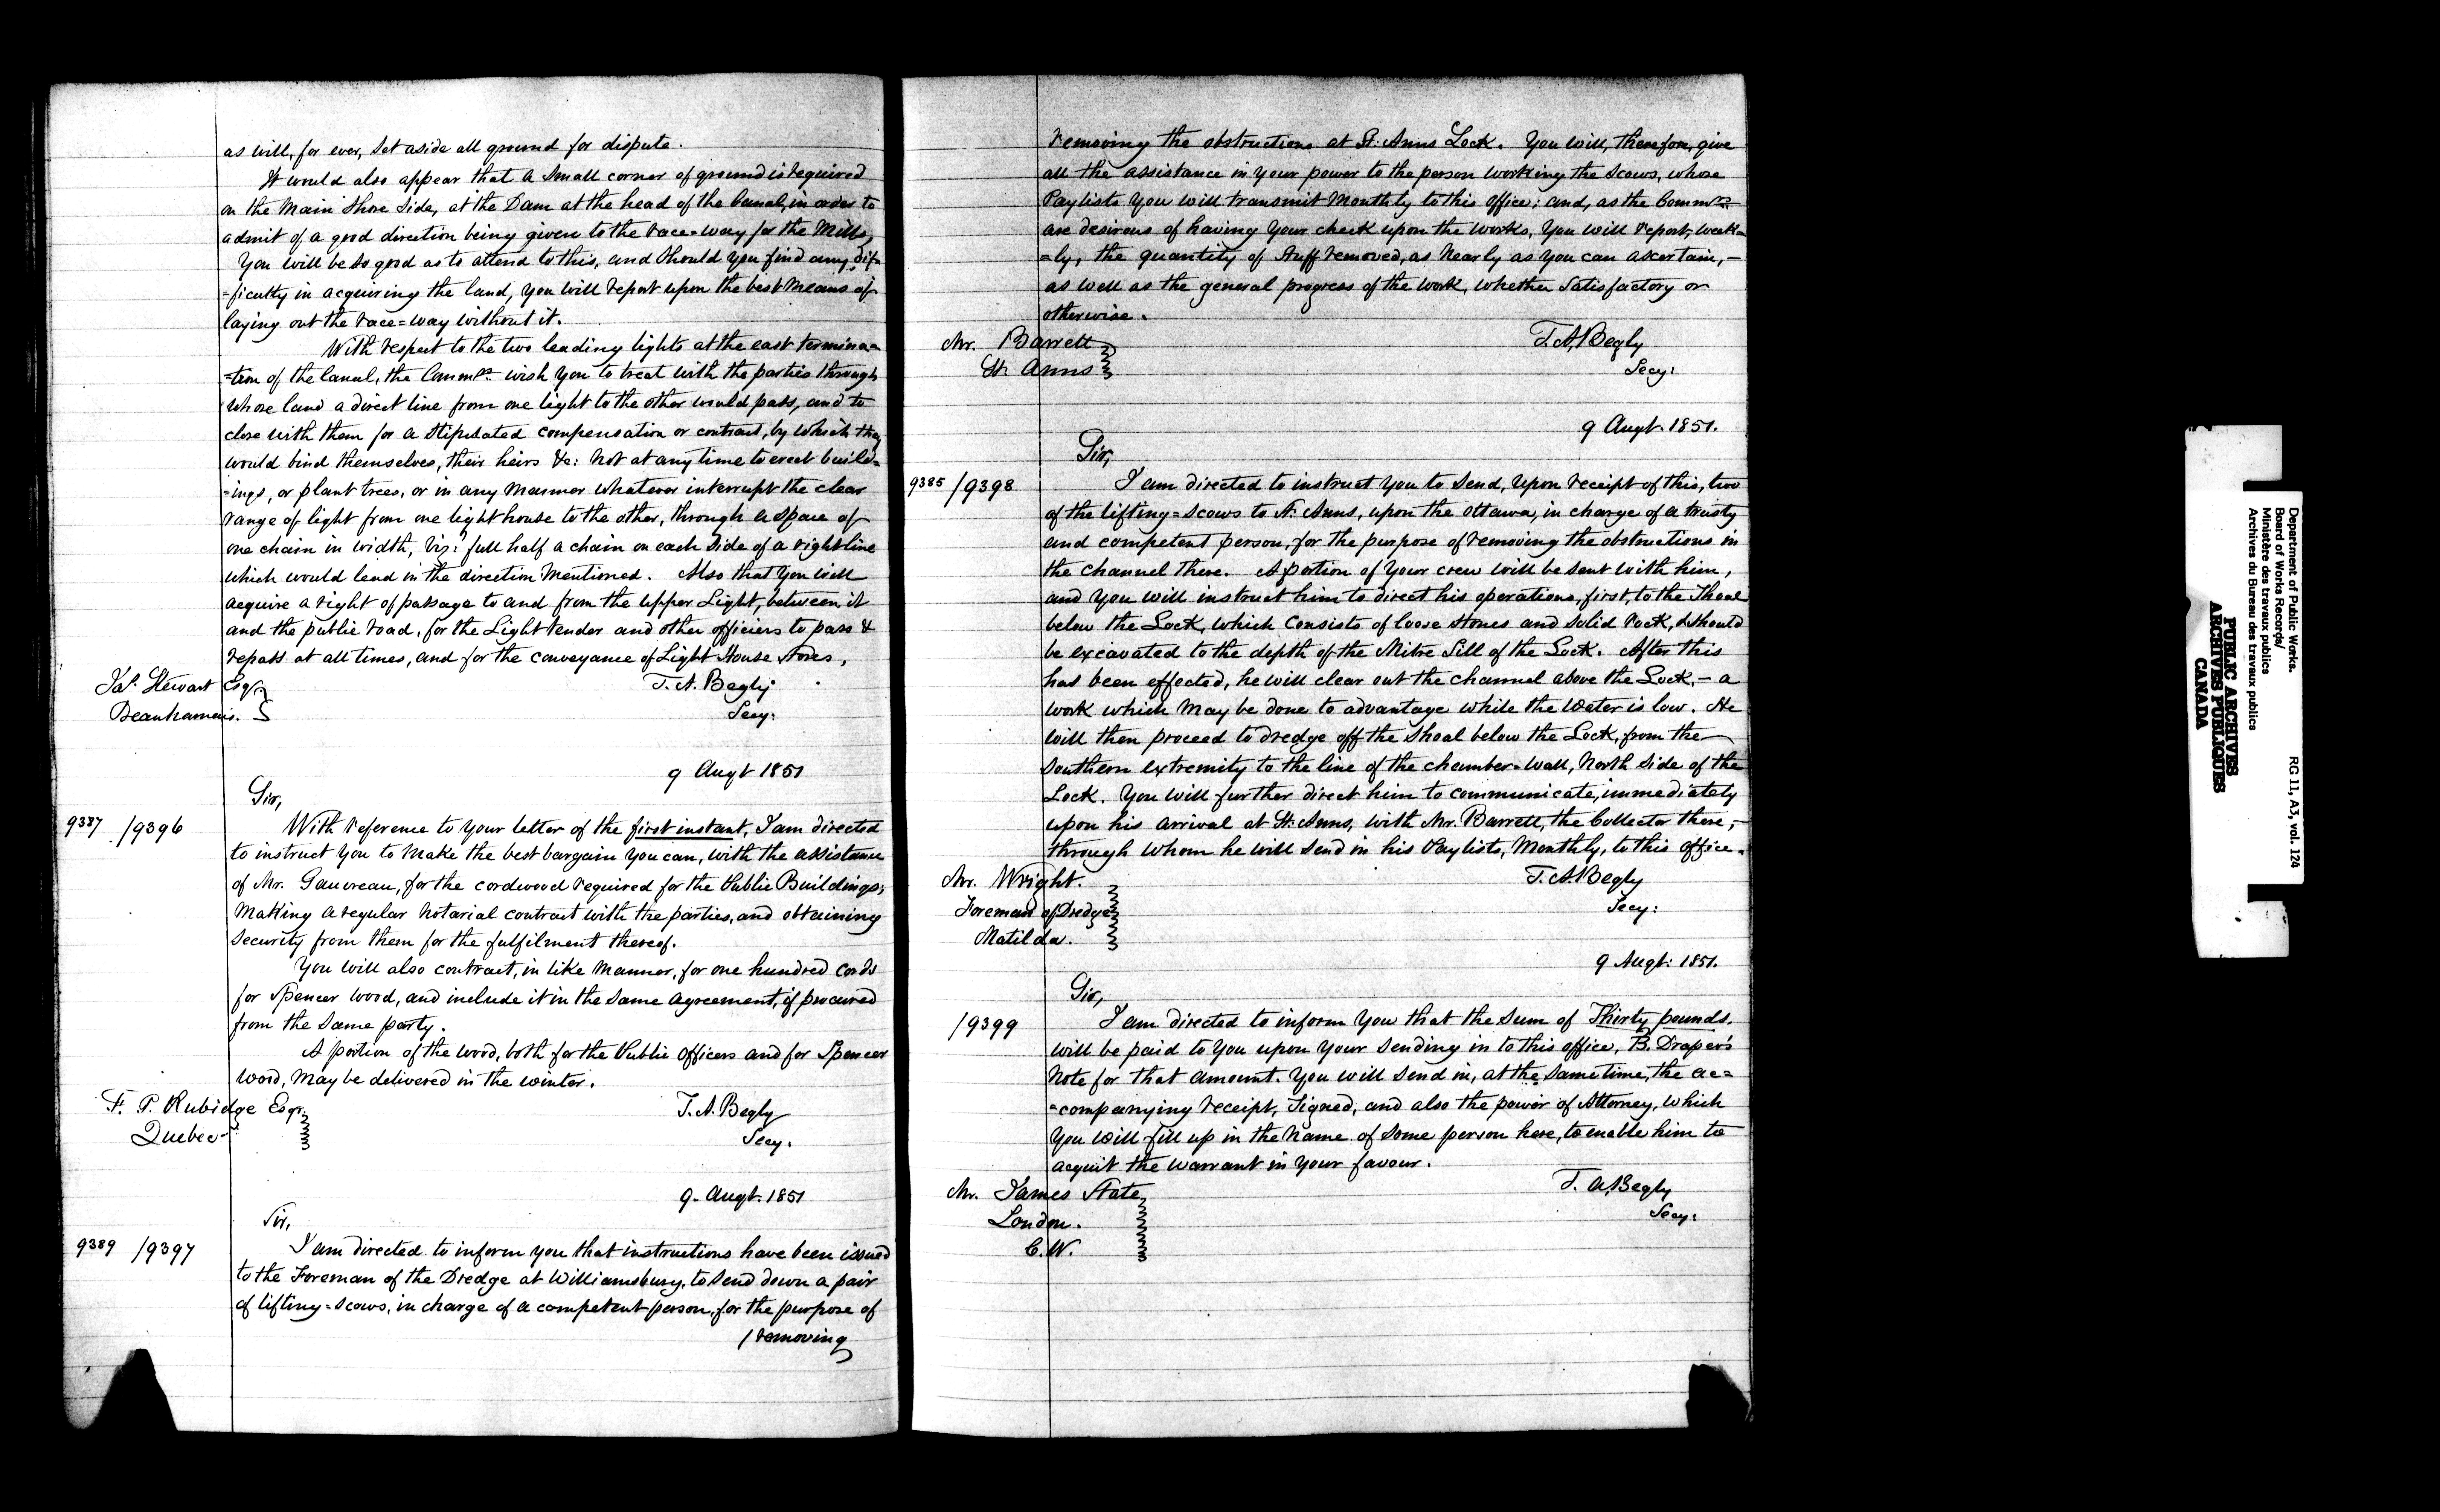 as will, for ever, set aside all ground for dispute.
It would also appear that a small corner of ground is required
on the Main Shore side, at the Dam at the head of the Canal, in order to
admit of a good direction being given to the race=way for the Mills,
You will be so good as to attend to this, and should you find any dif=
=ficulty in acquiring the land, you will report upon the best means of
laying out the race=way without it.
With respect to the two leading lights at the east termina=
=tion of the Canal, the Commrs. wish you to treat with the parties through
whose land a direct line from one light to the other would pass, and to
close with them for a stipulated compensation or contract, by which they
would bind themselves, their heirs &c: not at any time to erect build=
=ings, or plant trees, or in any manner whatever interrupt the clear
range of light from one light house to the other, through a space of
one chain in width, viz: full half a chain on each side of a right line
which would lead in the direction mentioned. Also that you will
acquire a right of passage to and from the upper Light, between it
and the public road, for the Light tender and other officiers to pass &
repass at all times, and for the conveyance of Light House stores,
Jas. Stewart Esqr.
Beauharnois.
T. A. Begly
Secy:
9 Augt 1851
Sir,
9387 /9396
With reference to your letter of the first instant, I am directed
to instruct you to make the best bargain you can, with the assistance
of Mr. Gauvreau, for the cordwood required for the Public Buildings,
making a regular notarial contract with the parties, and obtaining
security from them for the fulfilment thereof.
You will also contract, in like manner, for one hundred cords
for Spencer Wood, and include it in the same agreement, if procured
from the same party.
A portion of the wood, both for the Public Officers and for Spencer
Wood, may be delivered in the winter.
F. P. Rubidge Esqr.
Quebec
T. A. Begly
Secy.
9. Augt. 1851
Sir,
9389 /9397
I am directed to inform you that instructions have been issued
to the Foreman of the Dredge at Williamsburg, to send down a pair
of lifting=scows, in charge of a competent person, for the purpose of
/removing
removing the obstructions at St. Anns Lock. You will, therefore, give
all the assistance in your power to the person working the scows, whose
Paylists you will transmit monthly to this office; and, as the Commrs.
are desirous of having your check upon the works, you will report, week=
=ly, the quantity of stuff removed, as nearly as you can ascertain,—
as well as the general progress of the work, whether satisfactory or
otherwise.
Mr. Barrett
St. Anns
T. A. Begly
Secy:
9 Augt. 1851.
Sir,
9385 /9398
I am directed to instruct you to send, upon receipt of this, two
of the lifting=scows to St. Anns, upon the Ottawa, in charge of a trusty
and competent person, for the purpose of removing the obstructions in
the channel there. A portion of your crew will be sent with him,
and you will instruct him to direct his operations, first, to the Shoal
below the Lock, which consists of loose stones and solid rock, & should
be excavated to the depth of the Mitre Sill of the Lock. After this
has been effected, he will clear out the channel above the Lock,— a
work which may be done to advantage while the water is low. He
will then proceed to dredge off the shoal below the Lock, from the
southern extremity to the line of the chamber-wall, North side of the
Lock. You will further direct him to communicate, immediately
upon his arrival at St. Anns, with Mr. Barrett, the Collector there,—
through whom he will send in his Paylists, Monthly, to this office.
Mr. Wright.
Foreman of Dredge
Matilda.
T. A. Begly
Secy:
9 Augt: 1851.
Sir,
/9399
I am directed to inform you that the sum of Thirty pounds.
will be paid to you upon your sending in to this office, B. Draper's
note for that amount. You will send in, at the same time, the ac=
=companying receipt, signed, and also the power of Attorney, which
you will fill up in the name of some person here, to enable him to
acquit the warrant in your favour.
Mr. James State,
London.
C. W.
T. A. Begly
Secy:
Department of Public Works.
Board of Works Records/
Ministère des travaux publics
Archives du Bureau des travaux publics
RG 11, A3, vol. 124
PUBLIC ARCHIVES
ARCHIVES PUBLIQUES
CANADA